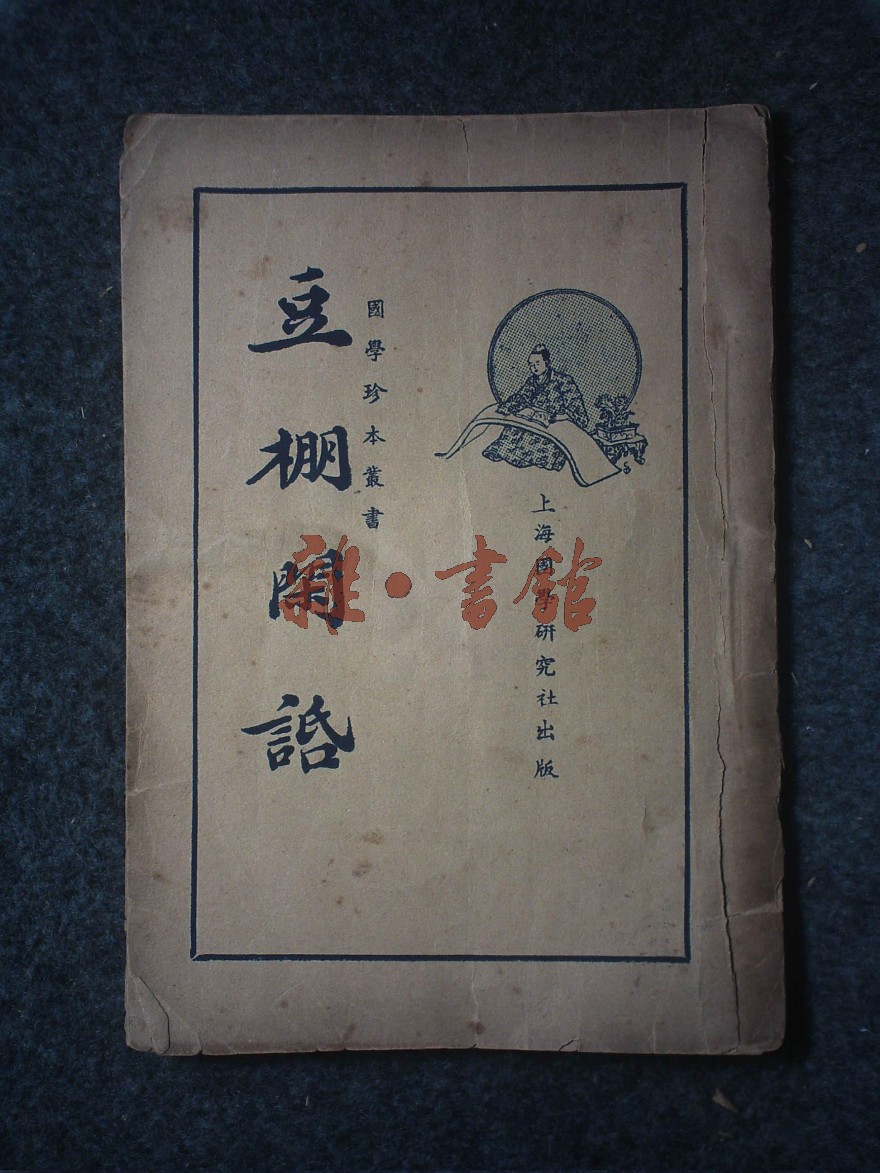 上海國學研究社出版
國學珍本叢書
豆棚閒䛡
雜·書館